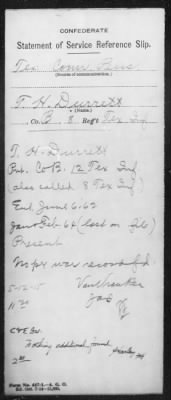 CONFEDERATE
Statement of Service Reference Slip.
Tex. Comr. Pens
(Source of communication.)
T. H. Durrett
(Name.)
Co. B 8 Reg't Tex Inf
T. H. Durrett
Pvt. Co B. 12 Tex Inf
(also called 8 Tex Inf)
Enl June 6/62
Jan & Feb 64 (last on file)
Present
No p of war record fd
5-12-15
Jas
Nothing additional found
Form No. 447-1—A. G. O.